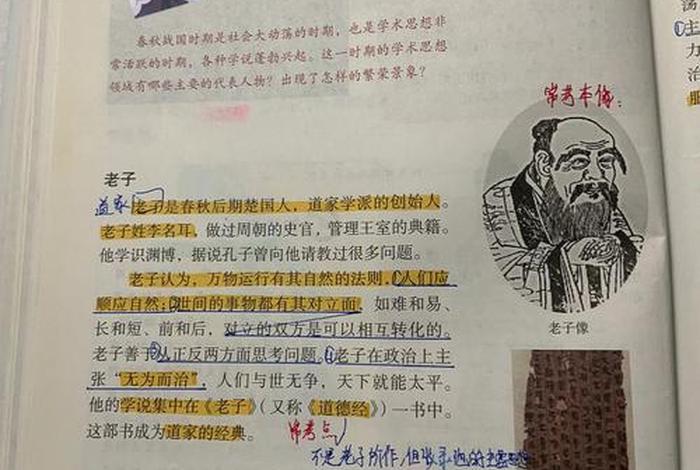 春秋战国时期是社会大动荡的时期，也是学术思想非
常活跃的时期，各种学说蓬勃兴起。这一时期的学术思想
领域有哪些主要的代表人物？出现了怎样的繁荣景象？
常考本像：
老子
道家
老子是春秋后期楚国人，道家学派的创始人。
老子姓李名耳，做过周朝的史官，管理王室的典籍。
他学识渊博，据说孔子曾向他请教过很多问题。
老子认为，万物运行有其自然的法则，①人们应
顺应自然；②世间的事物都有其对立面，如难和易、
长和短、前和后，对立的双方是可以相互转化的。
老子善于③从正反两方面思考问题。④老子在政治上主
张“无为而治”，人们与世无争，天下就能太平。
他的学说集中在《老子》（又称《道德经》）一书中。
这部书成为道家的经典。
常考点
不是老子所作，但收录他的主要思想
老子像
①主
力
治